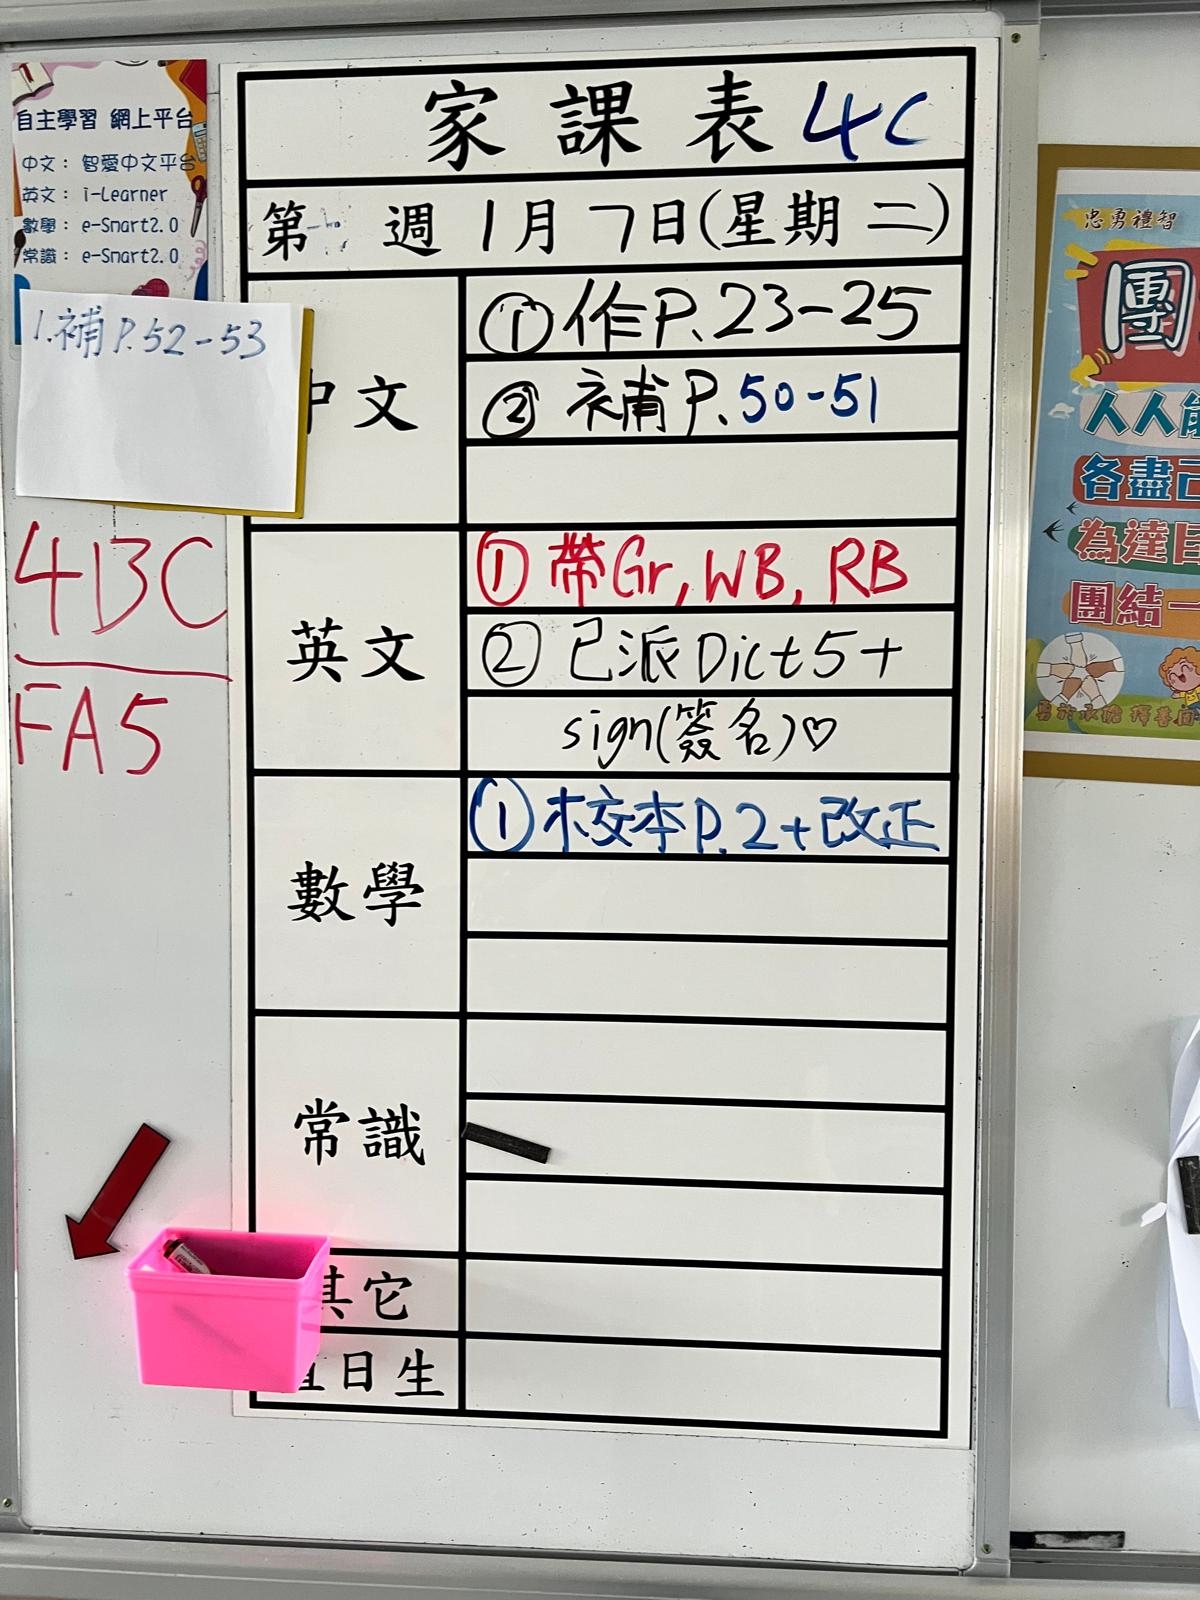 自主學習 網上平台
中文： 智愛中文平台
英文： i-Learner
數學： e-Smart2.0
常識： e-Smart2.0
1.補P.52-53
4BC
FA5
家課表 4C
第 週 1月7日(星期二)
中文
①作P.23-25
②補P.50-51
英文
①帶Gr, WB, RB
②已派Dict5+
sign(簽名)♡
數學
①校本P.2+改正
常識
其它
值日生
忠勇禮智
團
人人能
各盡己
為達目
團結一